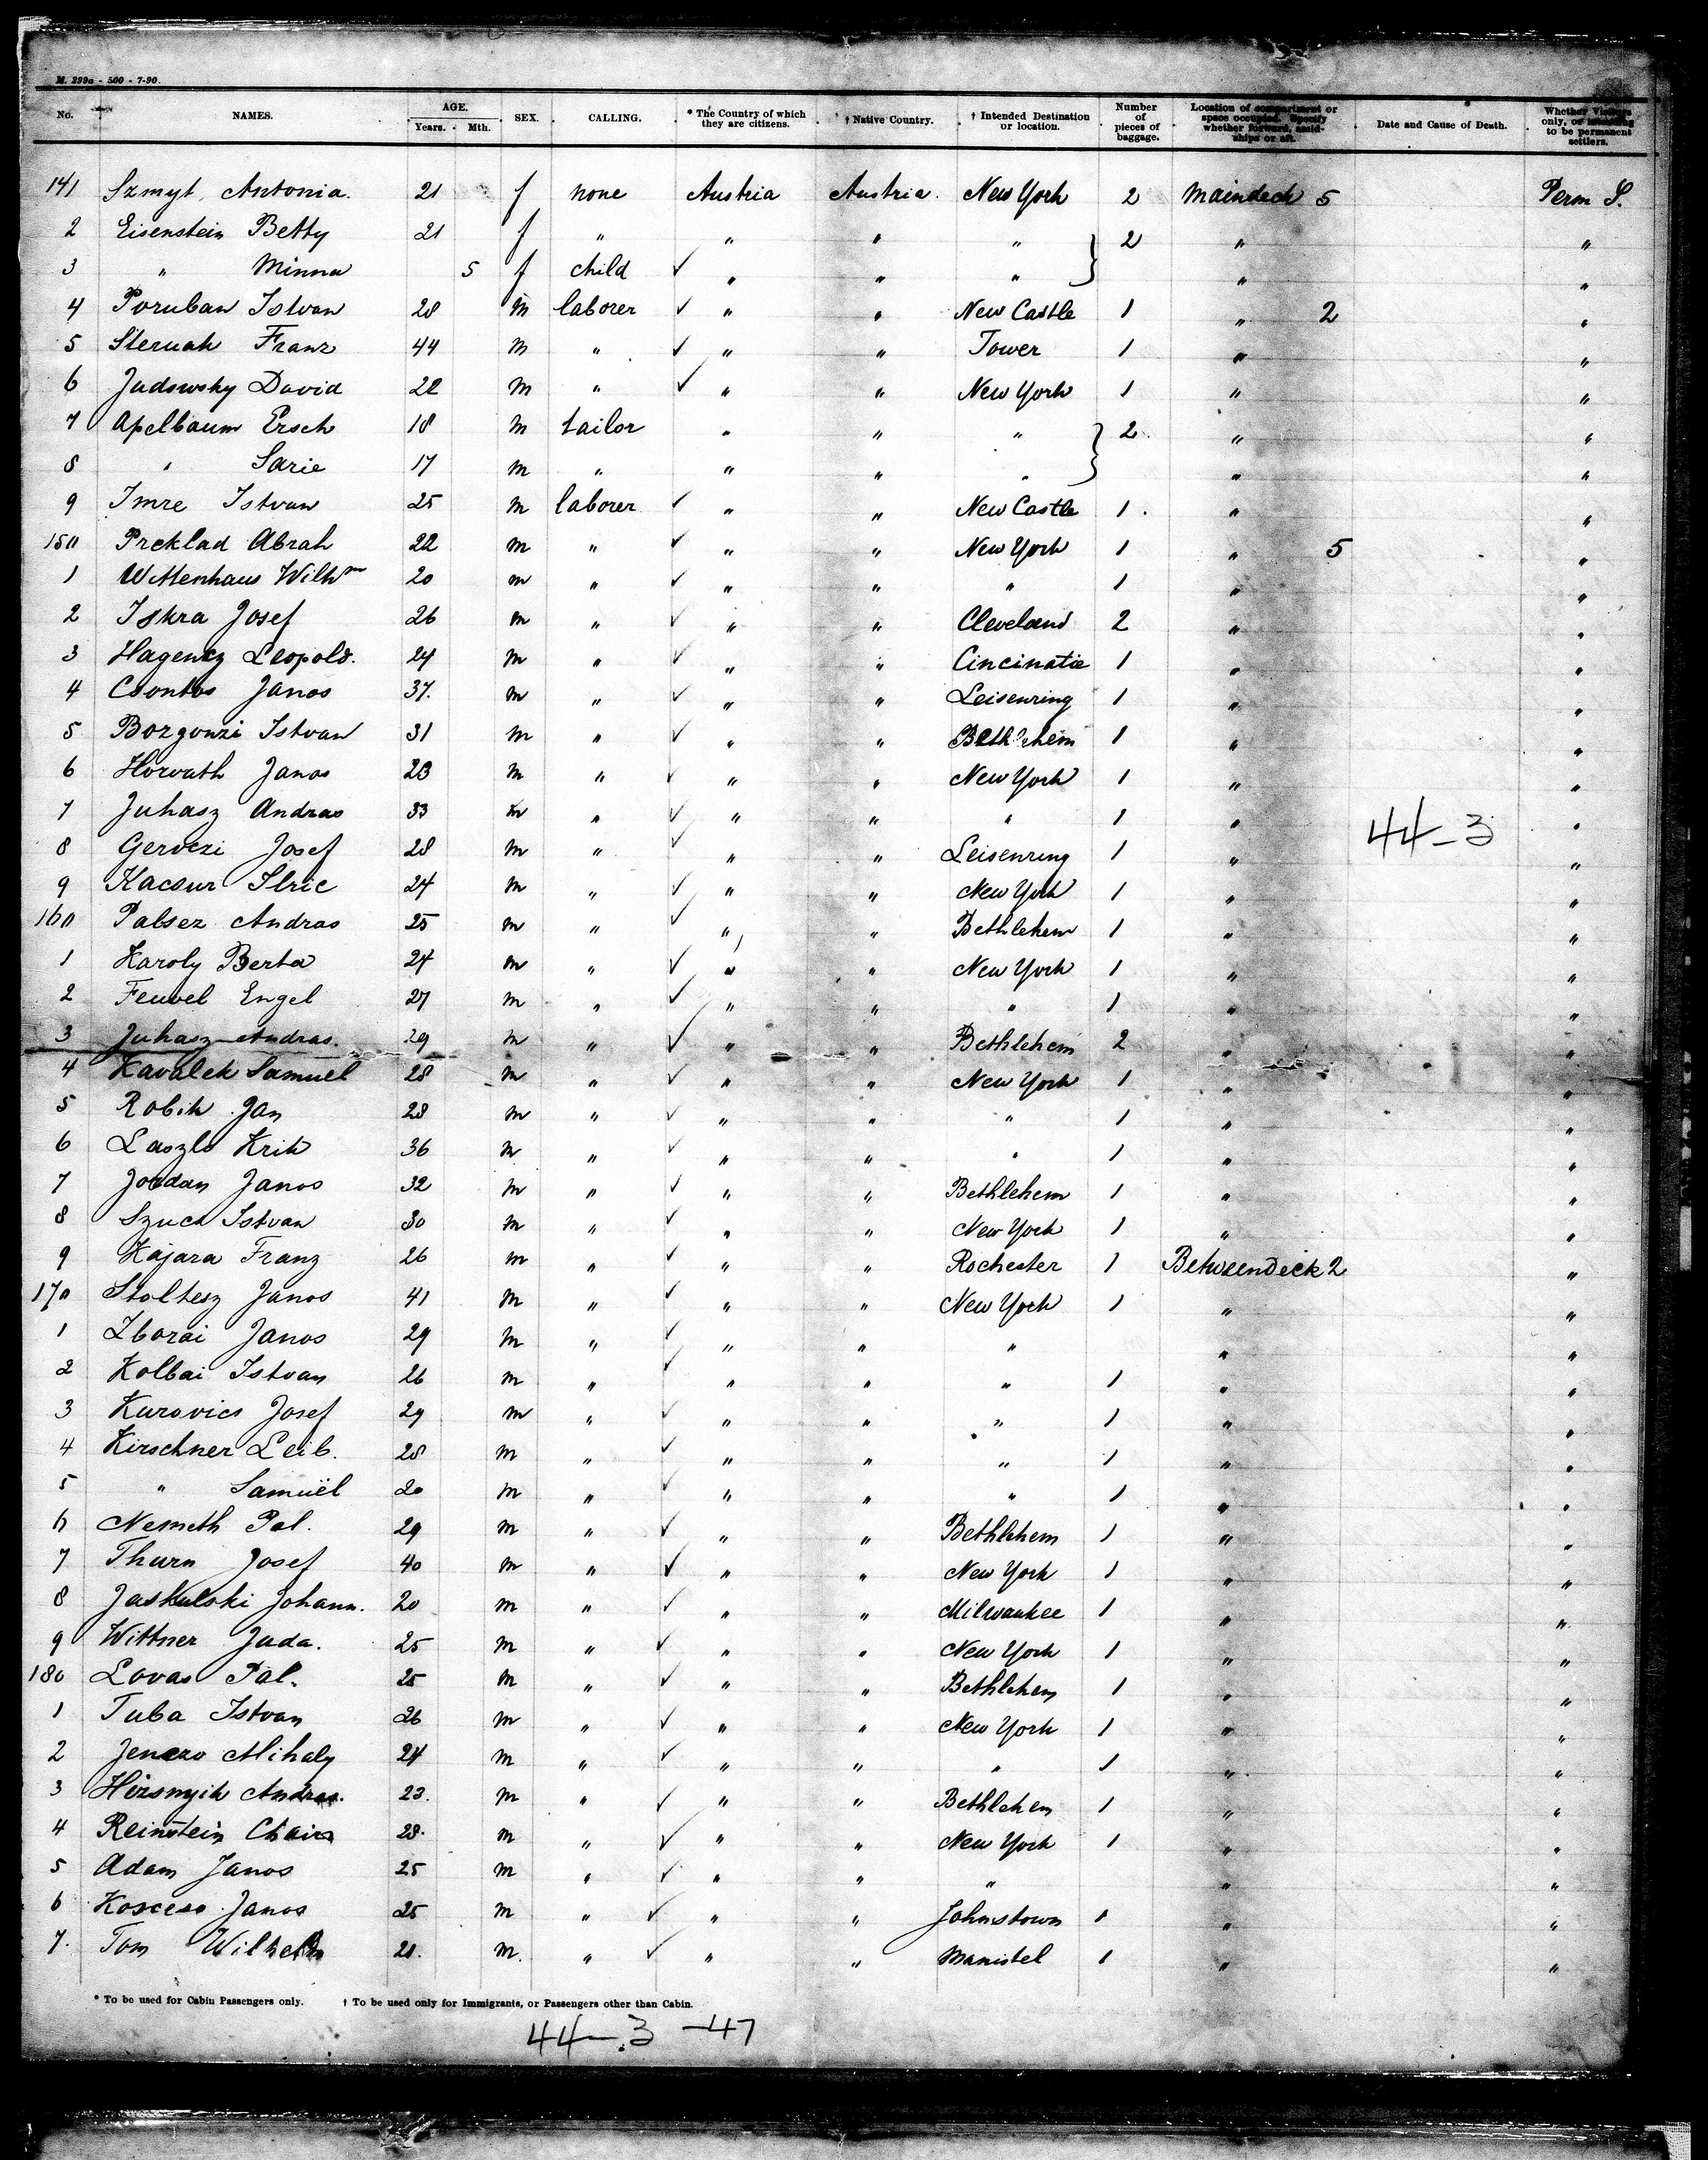 M. 299a - 500 - 7-90.
No. NAMES. AGE. Years. Mth. SEX. CALLING. * The Country of which they are citizens. † Native Country. † Intended Destination or location. Number of pieces of baggage. Location of compartment or space occupied. Specify whether forward, amidships or aft. Date and Cause of Death. Whether Visitors only, or intending to be permanent settlers.
141 Szmyt, Antonia. 21 f none Austria Austria. New York 2 Maindeck 5 Perm S.
2 Eisenstein Betty 21 f " " " " } 2 " "
3 " Minna 5 f child ✓ " " " " "
4 Poruban Istvan 28 m laborer ✓ " " New Castle 1 " 2 "
5 Steruak Franz 44 m " ✓ " " Tower 1 " "
6 Judowsky David 22 m " ✓ " " New York 1 " "
7 Apelbaum Ersch 18 m tailor " " " } 2 " "
8 " Sarie 17 m " " " " " "
9 Imre Istvan 25 m laborer ✓ " " New Castle 1 " "
150 Preklad Abrah 22 m " ✓ " " New York 1 " 5 "
1 Wittenhaus Wilhm 20 m " ✓ " " " 1 " "
2 Iskra Josef 26 m " ✓ " " Cleveland 2 " "
3 Hagencz Leopold. 24 m " ✓ " " Cincinatie 1 " "
4 Csontos Janos 37. m " ✓ " " Leisenring 1 " "
5 Bozgonzi Istvan 31 m " ✓ " " Bethlehem 1 " "
6 Horvath Janos 23 m " ✓ " " New York 1 " "
7 Juhasz Andras 33 m " ✓ " " " 1 " 44-3 "
8 Gervezi Josef 28 m " ✓ " " Leisenring 1 " "
9 Kacsur Ilric 24 m " ✓ " " New York 1 " "
160 Palsez Andras 25 m " ✓ " " Bethlehem 1 " "
1 Karoly Berta 24 m " ✓ " " New York 1 " "
2 Feuvel Engel 27 m " ✓ " " " 1 " "
3 Juhasz Andras. 29 m " ✓ " " Bethlehem 2 " "
4 Kavalek Samuel 28 m " ✓ " " New York 1 " "
5 Robik Jan 28 m " ✓ " " " 1 " "
6 Laszlo Krik 36 m " ✓ " " " 1 " "
7 Jordan Janos 32 m " ✓ " " Bethlehem 1 " "
8 Szucs Istvan 30 m " ✓ " " New York 1 " "
9 Kajara Franz 26 m " ✓ " " Rochester 1 Betweendeck 2 "
170 Stoltesz Janos 41 m " ✓ " " New York 1 " "
1 Zborai Janos 29 m " ✓ " " " " "
2 Kolbai Istvan 26 m " ✓ " " " 1 " "
3 Kurovics Josef 29 m " ✓ " " " 1 " "
4 Kirschner Leib. 28 m " ✓ " " " 1 " "
5 " Samuël 20 m " ✓ " " " 1 " "
6 Nemeth Pal. 29 m " ✓ " " Bethlehem 1 " "
7 Thurn Josef 40 m " ✓ " " New York 1 " "
8 Jaskulski Johann. 20 m " ✓ " " Milwaukee 1 " "
9 Wittner Juda. 25 m " ✓ " " New York 1 " "
180 Lovas Pal. 25 m " ✓ " " Bethlehem 1 " "
1 Tuba Istvan 26 m " ✓ " " New York 1 " "
2 Jenczo Mihaly 24 m " ✓ " " " 1 " "
3 Hirsnyik Andras. 23. m " ✓ " " Bethlehem 1 " "
4 Reinstein Chaim 28. m " ✓ " " New York 1 " "
5 Adam Janos 25 m " ✓ " " " " "
6 Koscess Janos 25 m " ✓ " " Johnstown 1 " "
7. Tom Wilhelm 21. m. " ✓ " " Manistel 1 " "
* To be used for Cabin Passengers only. † To be used only for Immigrants, or Passengers other than Cabin.
44-3 -47